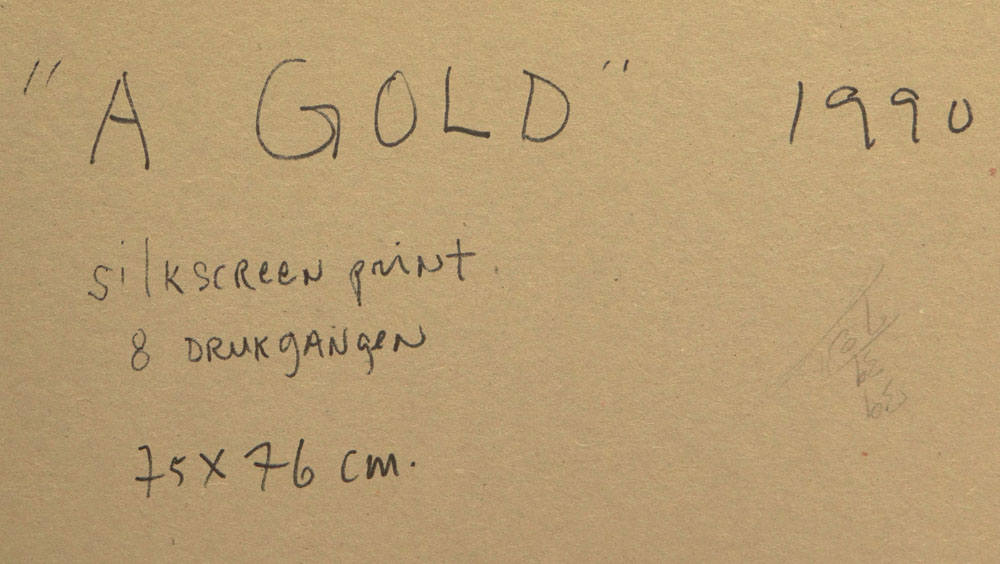 "A GOLD" 1990
silkscreen print.
8 DRUKGANGEN
75 x 76 cm.